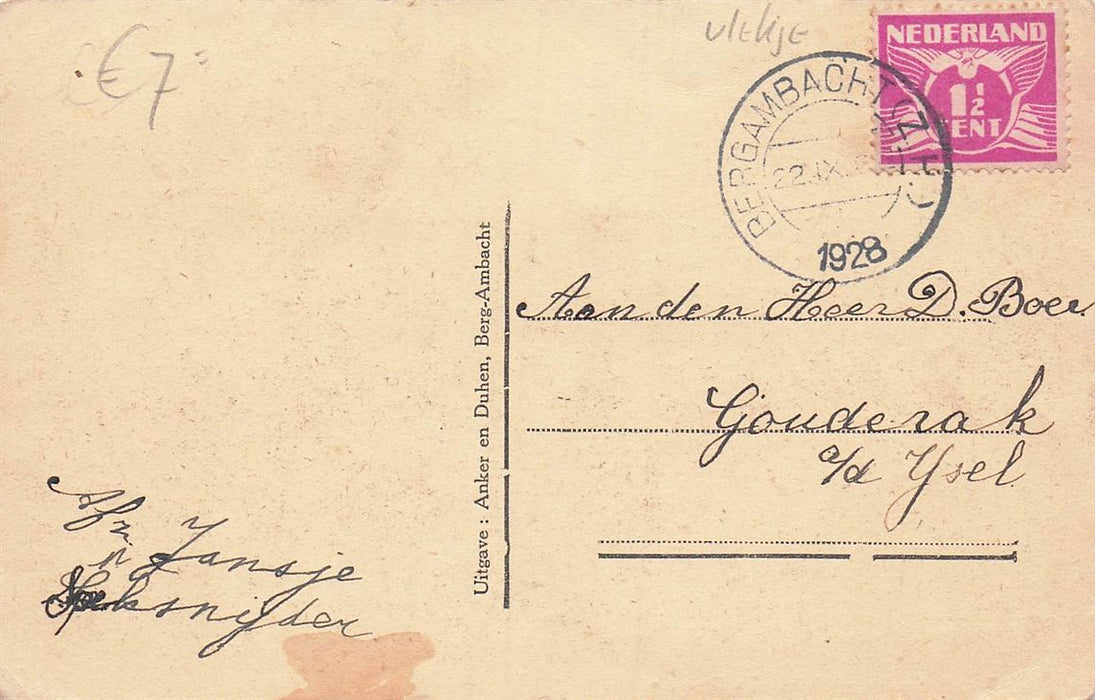 € 7
vlekje
NEDERLAND
1½
CENT
BERGAMBACHT (Z.H.)
22.IX
1928
Aan den Heer D. Boer
Gouderak
a/d Ysel
Uitgave : Anker en Duhen, Berg-Ambacht
Afz
Jansje